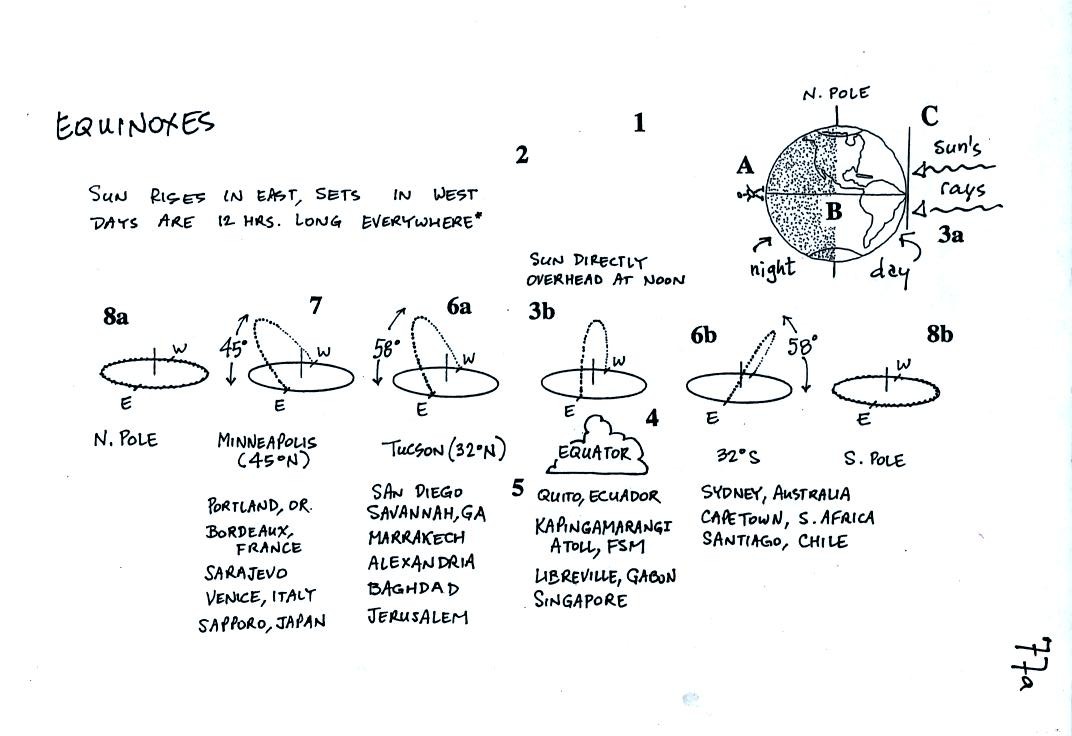 EQUINOXES
1
2
SUN RISES IN EAST, SETS IN WEST
DAYS ARE 12 HRS. LONG EVERYWHERE*
N. POLE
C
A
Sun's
rays
B
3a
night
day
SUN DIRECTLY
OVERHEAD AT NOON
8a
W
E
N. POLE
7
45°
W
E
MINNEAPOLIS
(45°N)
PORTLAND, OR.
BORDEAUX,
FRANCE
SARAJEVO
VENICE, ITALY
SAPPORO, JAPAN
6a
58°
W
E
TUCSON (32°N)
SAN DIEGO
SAVANNAH, GA
MARRAKECH
ALEXANDRIA
BAGHDAD
JERUSALEM
3b
W
E
4
EQUATOR
5
QUITO, ECUADOR
KAPINGAMARANGI
ATOLL, FSM
LIBREVILLE, GABON
SINGAPORE
6b
58°
E
32°S
SYDNEY, AUSTRALIA
CAPETOWN, S. AFRICA
SANTIAGO, CHILE
8b
W
E
S. POLE
77a